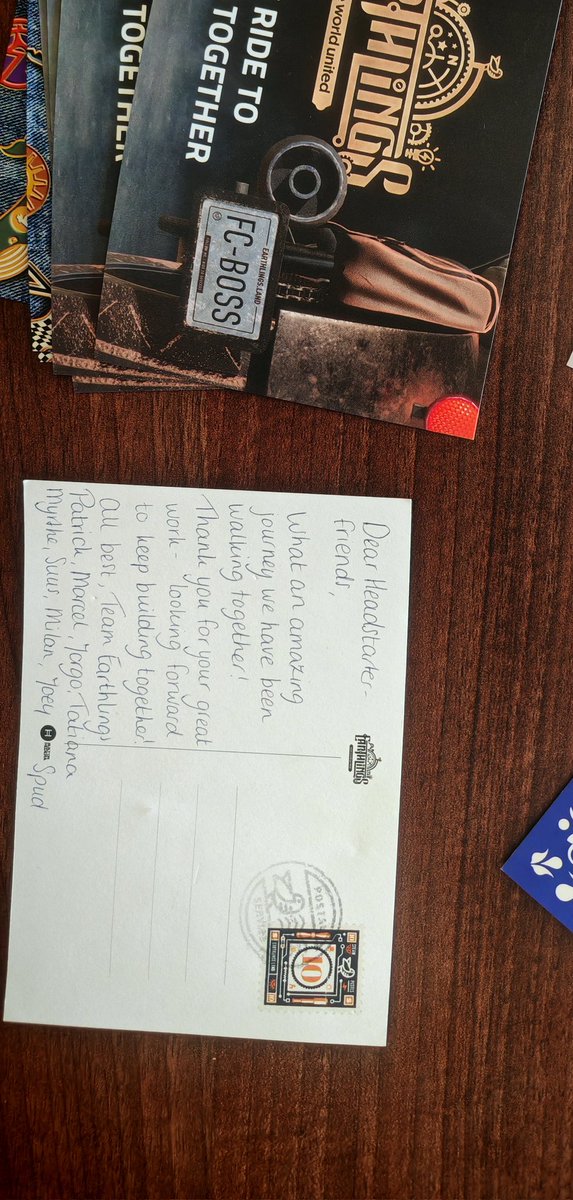 RIDE TO
TOGETHER
TOGETHER
world united
EARTHLINGS.LAND
FC-BOSS
Dear Headstarter-
friends,
What an amazing
journey we have been
walking together!
Thank you for your great
work - looking forward
to keep building together!
All best, Team Earthlings
Patrick, Marcel, Yorgo, Tatiana
Myrthe, Suus, Milan, Joey
Spud
EARTHLINGS
POSTAL
SERVICE
10